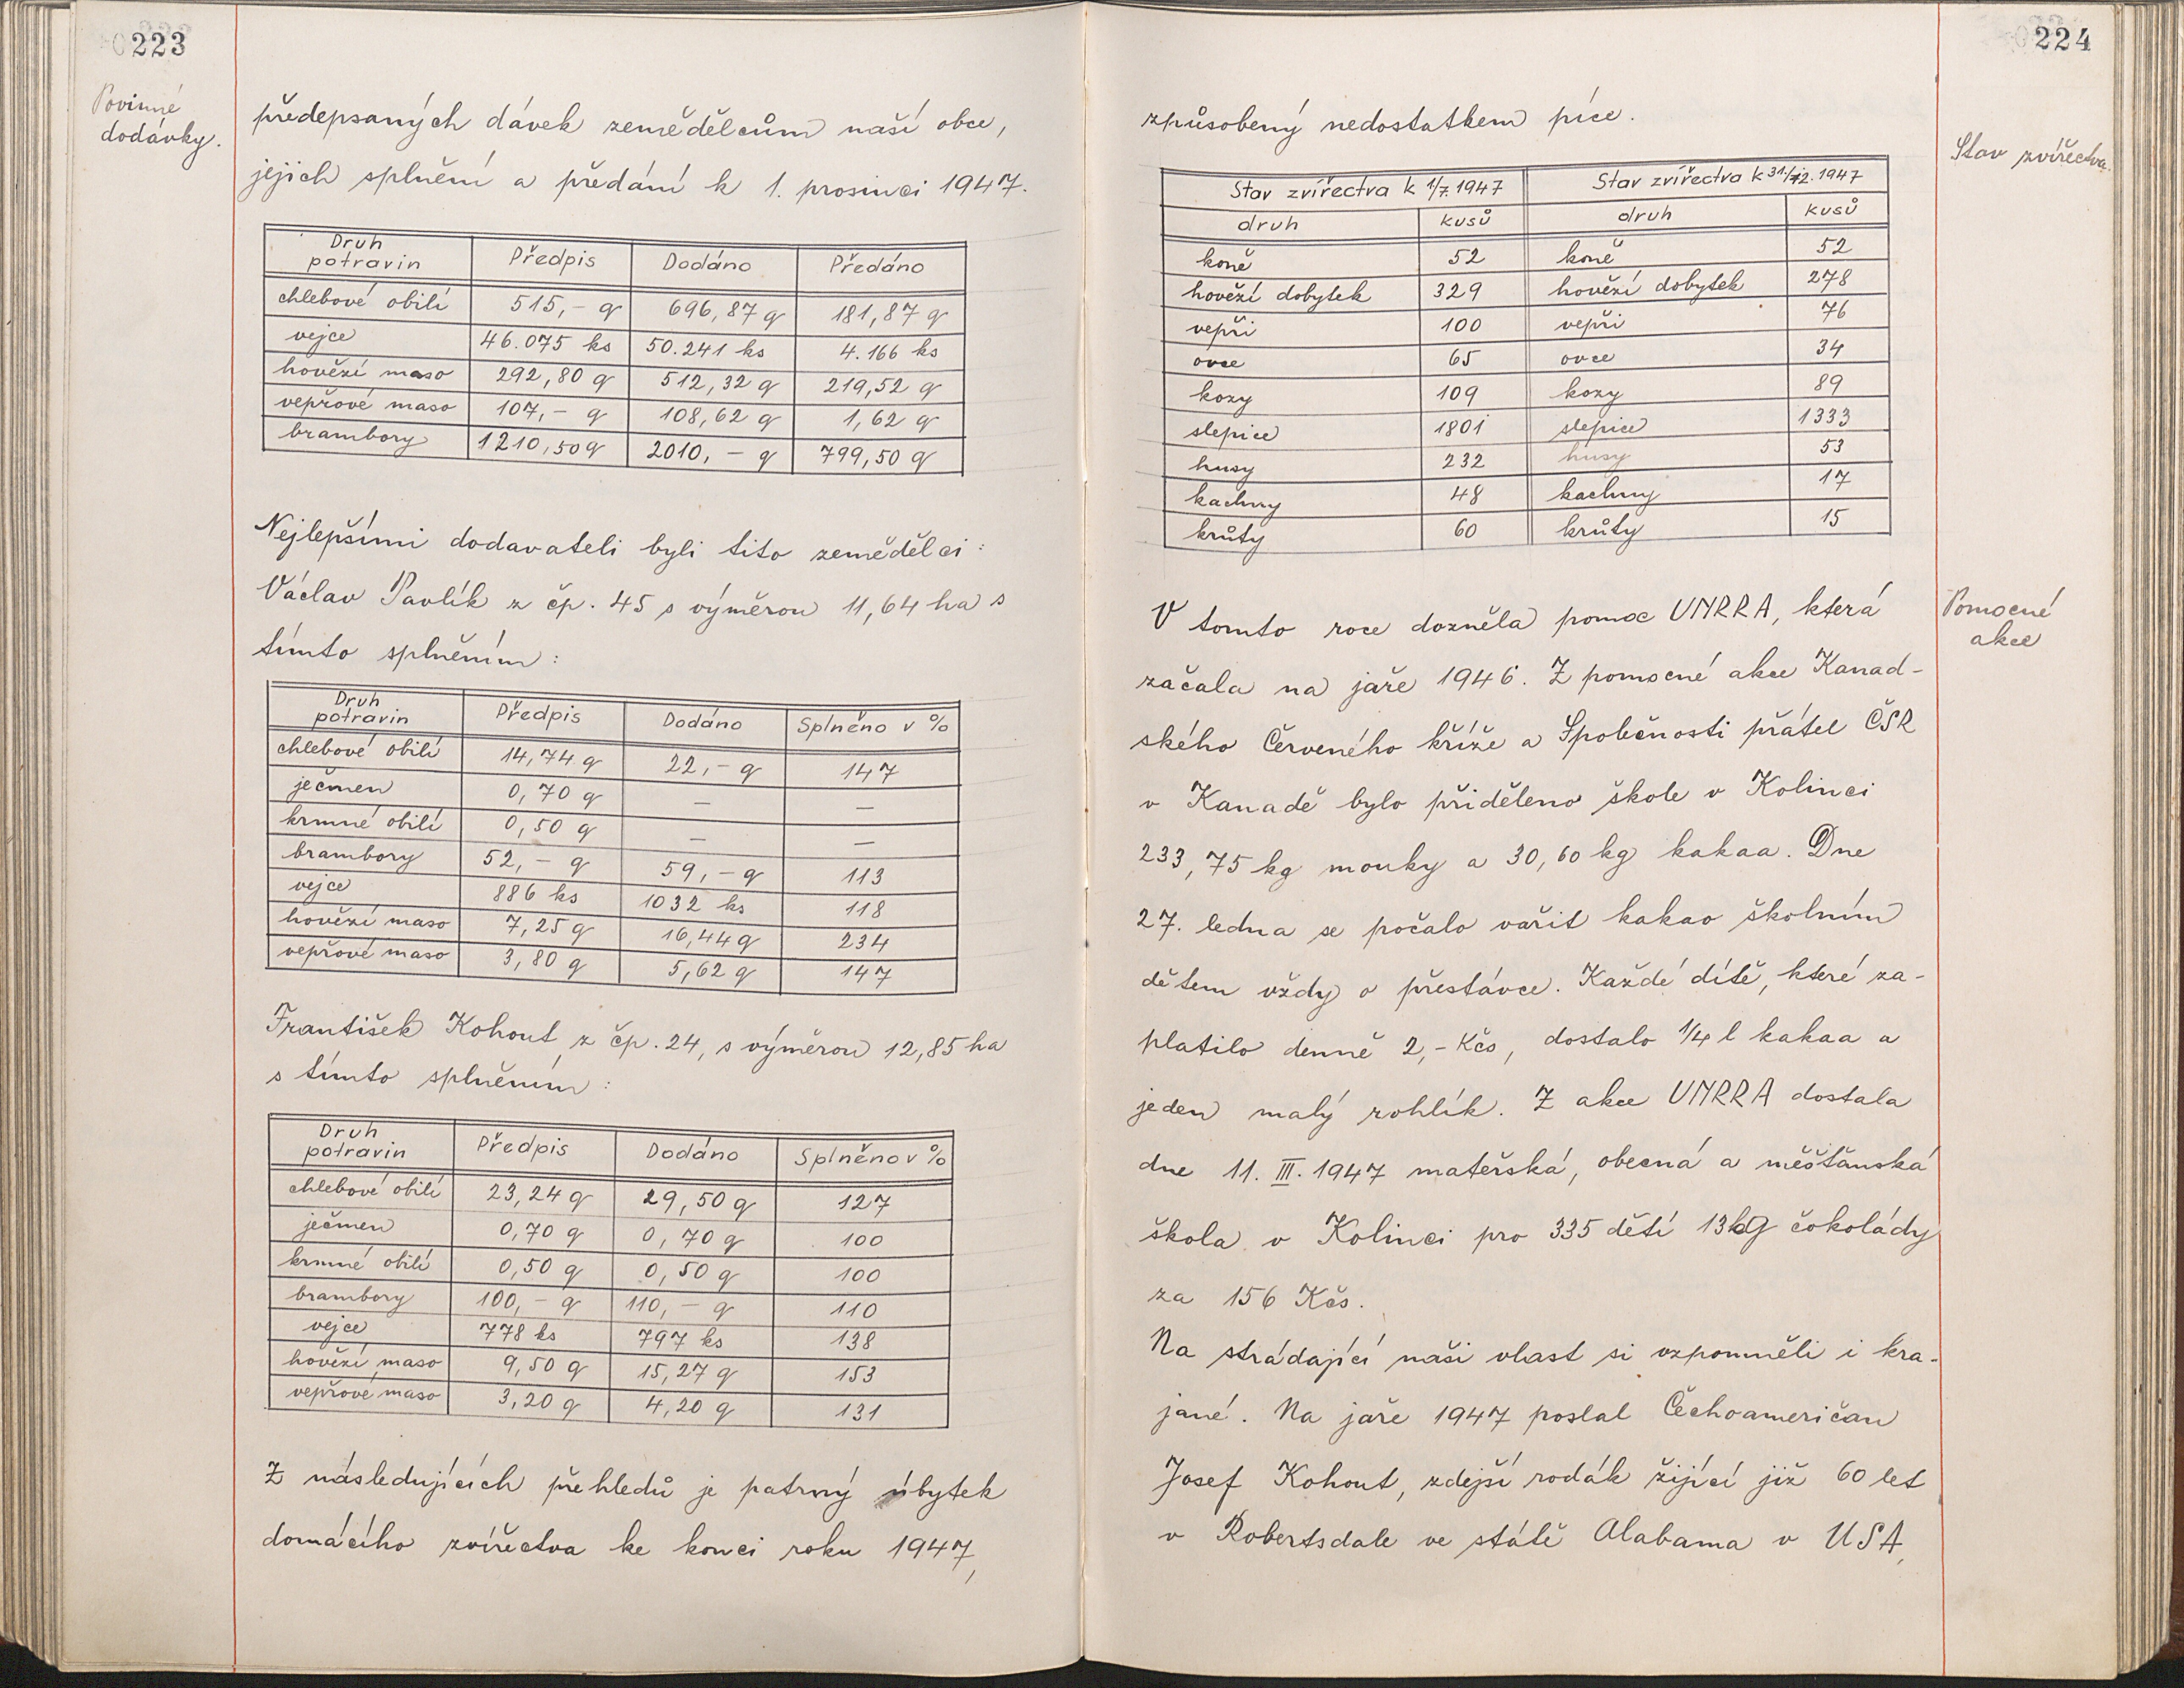 223
Povinné
dodávky.
předepsaných dávek zemědělcům naší obce,
jejich splnění a předání k 1. prosinci 1947.
Druh potravin | Předpis | Dodáno | Předáno
chlebové obilí | 515,- q | 696,87 q | 181,87 q
vejce | 46.075 ks | 50.241 ks | 4.166 ks
hovězí maso | 292,80 q | 512,32 q | 219,52 q
vepřové maso | 107,- q | 108,62 q | 1,62 q
brambory | 1210,50 q | 2010,- q | 799,50 q
Nejlepšími dodavateli byli tito zemědělci:
Václav Pavlík z čp. 45 s výměrou 11,64 ha s
tímto splněním:
Druh potravin | Předpis | Dodáno | Splněno v %
chlebové obilí | 14,74 q | 22,- q | 147
ječmen | 0,70 q | — | —
krmné obilí | 0,50 q | — | —
brambory | 52,- q | 59,- q | 113
vejce | 886 ks | 1032 ks | 118
hovězí maso | 7,25 q | 16,44 q | 234
vepřové maso | 3,80 q | 5,62 q | 147
František Kohout z čp. 24, s výměrou 12,85 ha
s tímto splněním:
Druh potravin | Předpis | Dodáno | Splněno v %
chlebové obilí | 23,24 q | 29,50 q | 127
ječmen | 0,70 q | 0,70 q | 100
krmné obilí | 0,50 q | 0,50 q | 100
brambory | 100,- q | 110,- q | 110
vejce | 778 ks | 797 ks | 138
hovězí maso | 9,50 q | 15,27 q | 153
vepřové maso | 3,20 q | 4,20 q | 131
Z následujících přehledů je patrný úbytek
domácího zvířectva ke konci roku 1947,
224
způsobený nedostatkem píce.
Stav zvířectva.
Stav zvířectva k 1/7. 1947 | Stav zvířectva k 31/12. 1947
druh | kusů | druh | kusů
koně | 52 | koně | 52
hovězí dobytek | 329 | hovězí dobytek | 278
vepři | 100 | vepři | 76
ovce | 65 | ovce | 34
kozy | 109 | kozy | 89
slepice | 1801 | slepice | 1333
husy | 232 | husy | 53
kachny | 48 | kachny | 17
krůty | 60 | krůty | 15
Pomocné
akce
V tomto roce dozněla pomoc UNRRA, která
začala na jaře 1946. Z pomocné akce Kanad-
ského Červeného kříže a Společnosti přátel ČSR
v Kanadě bylo přiděleno škole v Kolinci
233,75 kg mouky a 30,60 kg kakaa. Dne
27. ledna se počalo vařit kakao školním
dětem vždy o přestávce. Každé dítě, které za-
platilo denně 2,- Kčs, dostalo 1/4 l kakaa a
jeden malý rohlík. Z akce UNRRA dostala
dne 11. III. 1947 mateřská, obecná a měšťanská
škola v Kolinci pro 335 dětí 13 kg čokolády
za 156 Kčs.
Na strádající naši vlast si vzpomněli i kra-
jané. Na jaře 1947 poslal Čechoameričan
Josef Kohout, zdejší rodák žijící již 60 let
v Robertsdale ve státě Alabama v USA,